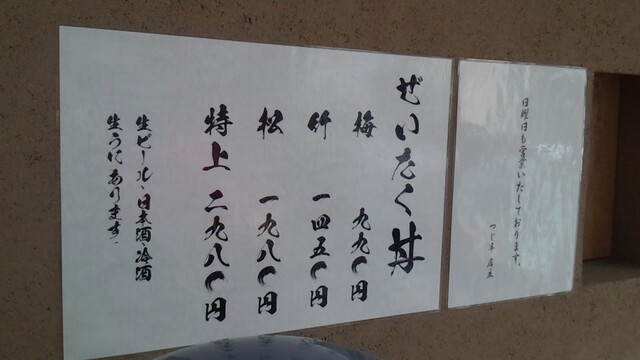 日曜日も営業いたしております。
つじ半 店主
ぜいたく丼
梅 九九〇円
竹 一四五〇円
松 一九八〇円
特上 二九八〇円
生ビール、日本酒冷酒
生うにあります。